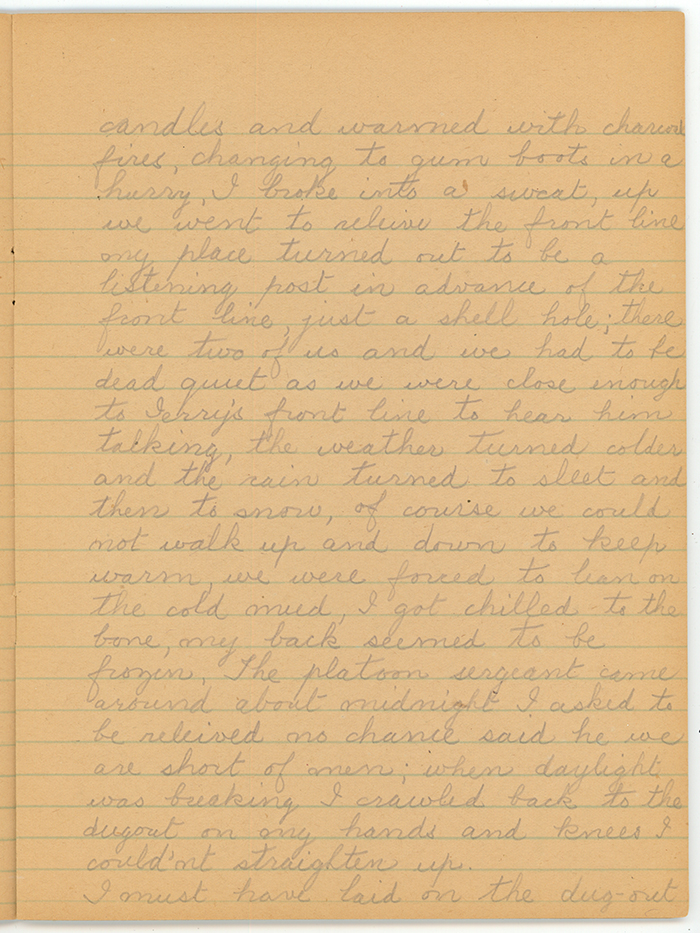 candles and warmed with charcoal
fires, changing to gum boots in a
hurry, I broke into a sweat, up
we went to releive the front line
my place turned out to be a
listening post in advance of the
front line, just a shell hole; there
were two of us and we had to be
dead quiet as we were close enough
to Jerry's front line to hear him
talking, the weather turned colder
and the rain turned to sleet and
then to snow, of course we could
not walk up and down to keep
warm, we were forced to lean on
the cold mud, I got chilled to the
bone, my back seemed to be
frozen, The platoon sergeant came
around about midnight I asked to
be releived no chance said he we
are short of men; when daylight
was breaking I crawled back to the
dugout on my hands and knees I
could'nt straighten up.
I must have laid on the dug-out